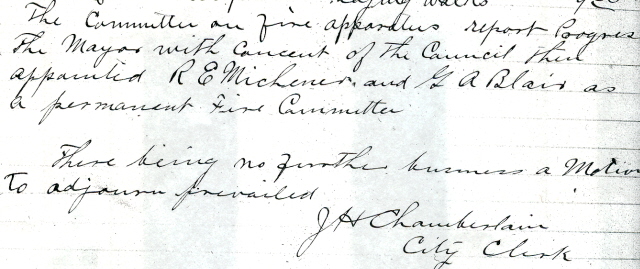 laying walks
The Committee on fire apparatus report Progress
The Mayor with concent of the Council then
appointed R E Michener and G A Blair as
a permanent Fire Committee
There being no further business a Motion
to adjourn prevailed
J H Chamberlain
City Clerk